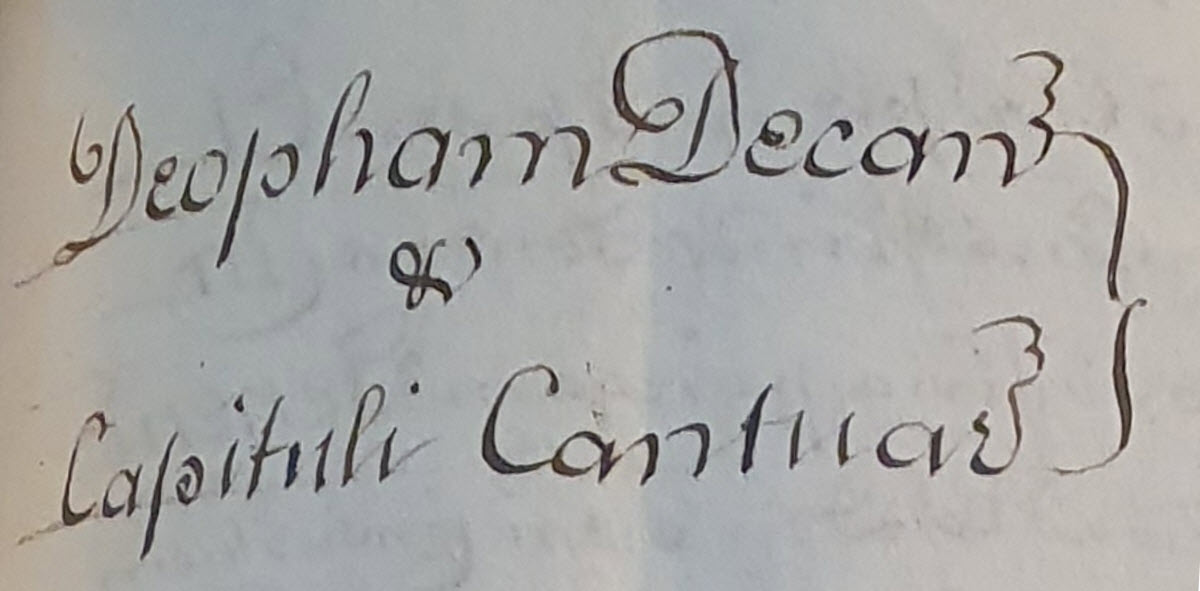 Deopham Decan
&
Capituli Cantuar